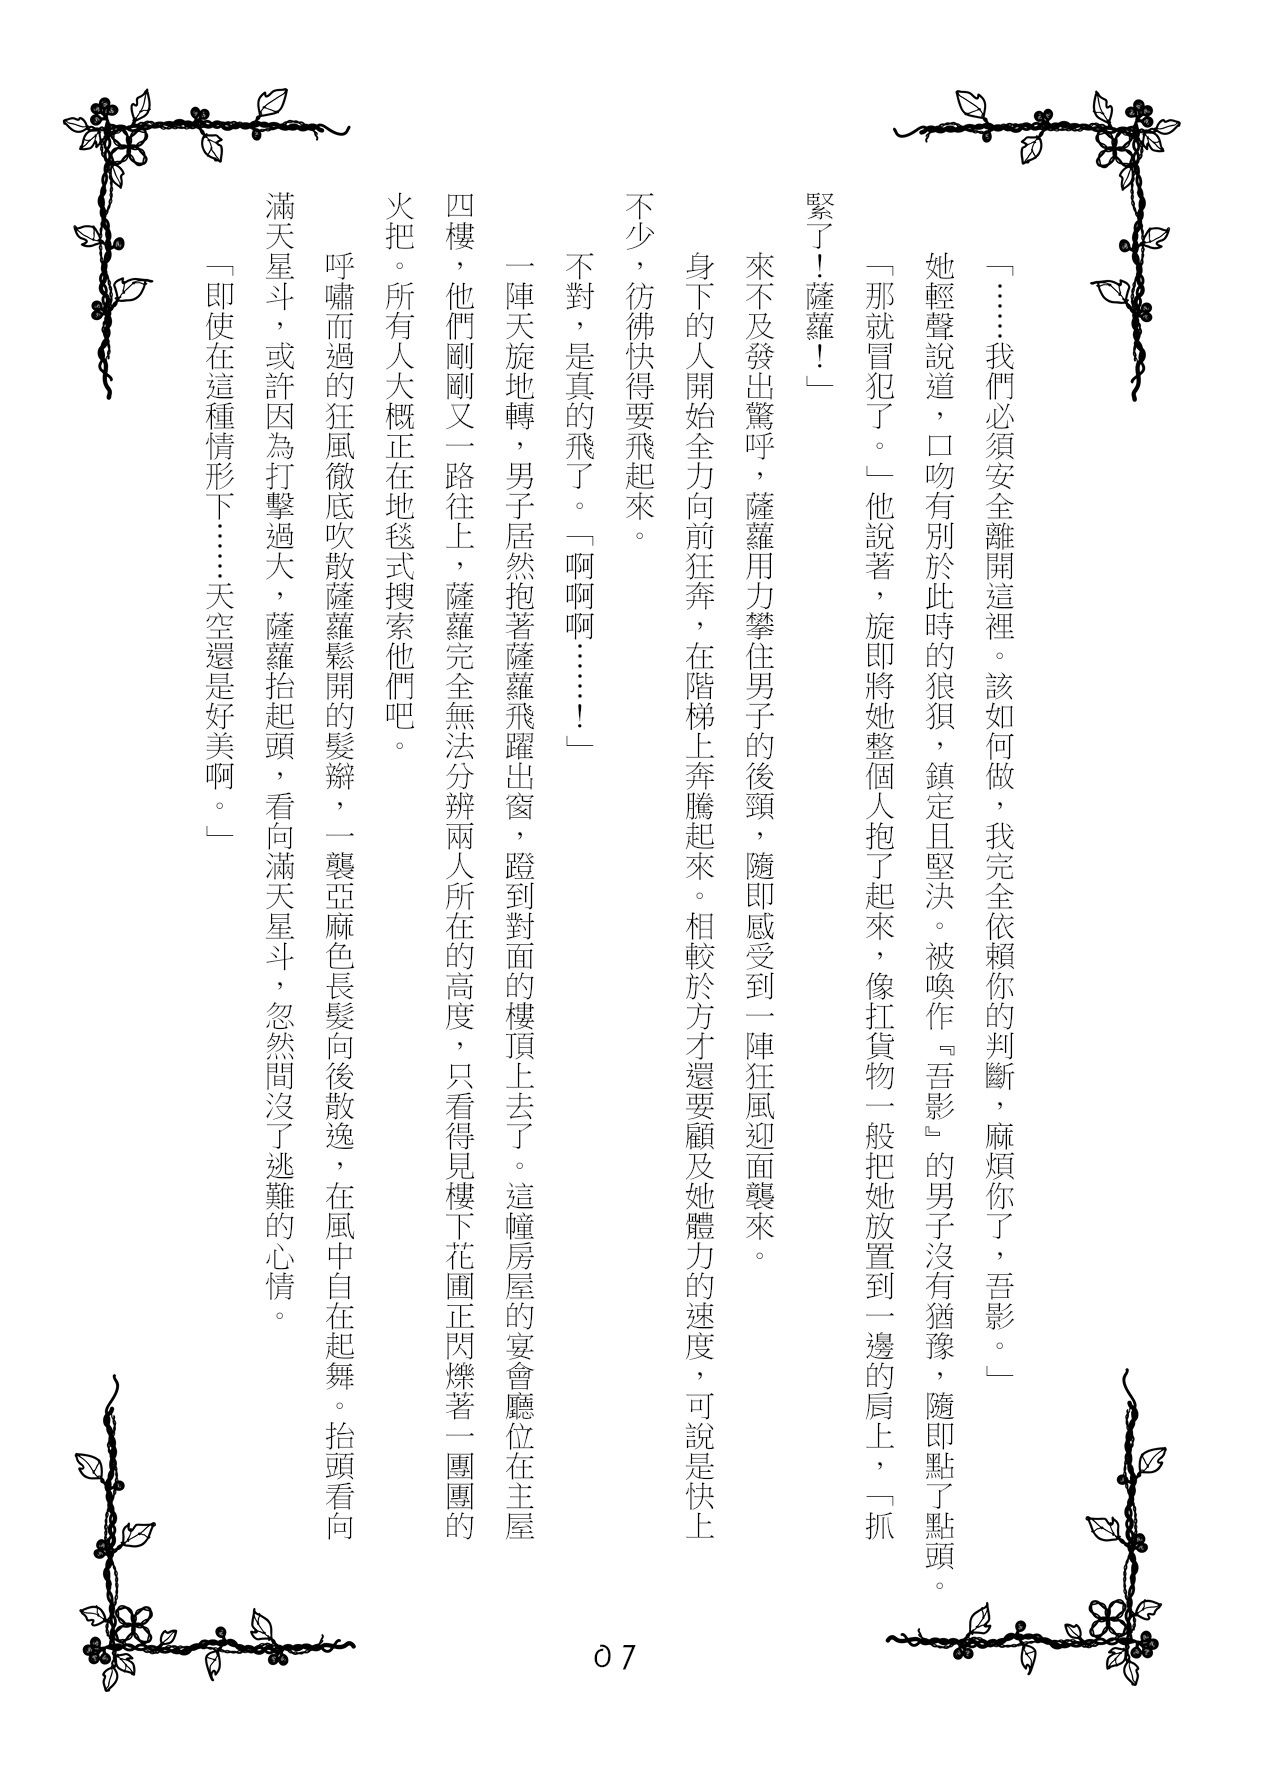 「……我們必須安全離開這裡。該如何做，我完全依賴你的判斷，麻煩你了，吾影。」
她輕聲說道，口吻有別於此時的狼狽，鎮定且堅決。被喚作『吾影』的男子沒有猶豫，隨即點了點頭。
「那就冒犯了。」他說著，旋即將她整個人抱了起來，像扛貨物一般把她放置到一邊的肩上，「抓
緊了！薩蘿！」
來不及發出驚呼，薩蘿用力攀住男子的後頸，隨即感受到一陣狂風迎面襲來。
身下的人開始全力向前狂奔，在階梯上奔騰起來。相較於方才還要顧及她體力的速度，可說是快上
不少，彷彿快得要飛起來。
不對，是真的飛了。「啊啊啊……！」
一陣天旋地轉，男子居然抱著薩蘿飛躍出窗，蹬到對面的樓頂上去了。這幢房屋的宴會廳位在主屋
四樓，他們剛剛又一路往上，薩蘿完全無法分辨兩人所在的高度，只看得見樓下花圃正閃爍著一團團的
火把。所有人大概正在地毯式搜索他們吧。
呼嘯而過的狂風徹底吹散薩蘿鬆開的髮辮，一襲亞麻色長髮向後散逸，在風中自在起舞。抬頭看向
滿天星斗，或許因為打擊過大，薩蘿抬起頭，看向滿天星斗，忽然間沒了逃難的心情。
「即使在這種情形下……天空還是好美啊。」
07